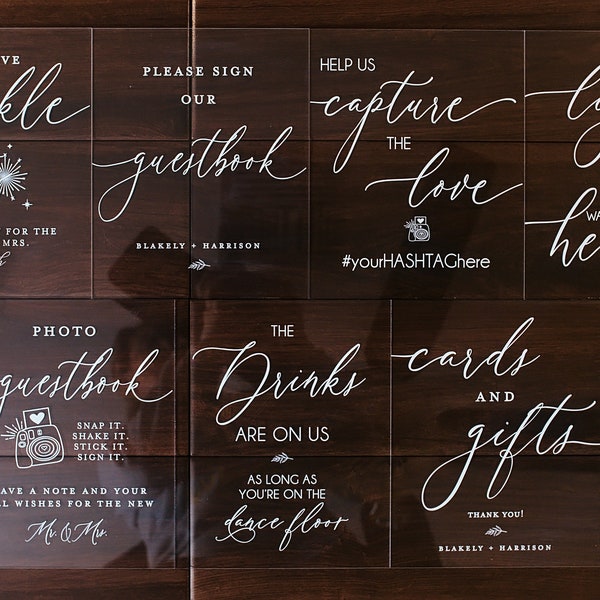 VE
kle
N FOR THE
MRS.
PLEASE SIGN
OUR
guestbook
BLAKELY + HARRISON
HELP US
capture
THE
love
#yourHASHTAGhere
WA
he
PHOTO
guestbook
SNAP IT.
SHAKE IT.
STICK IT.
SIGN IT.
EAVE A NOTE AND YOUR
LL WISHES FOR THE NEW
Mr. & Mrs.
THE
Drinks
ARE ON US
AS LONG AS
YOU'RE ON THE
dance floor
cards
AND
gifts
THANK YOU!
BLAKELY + HARRISON